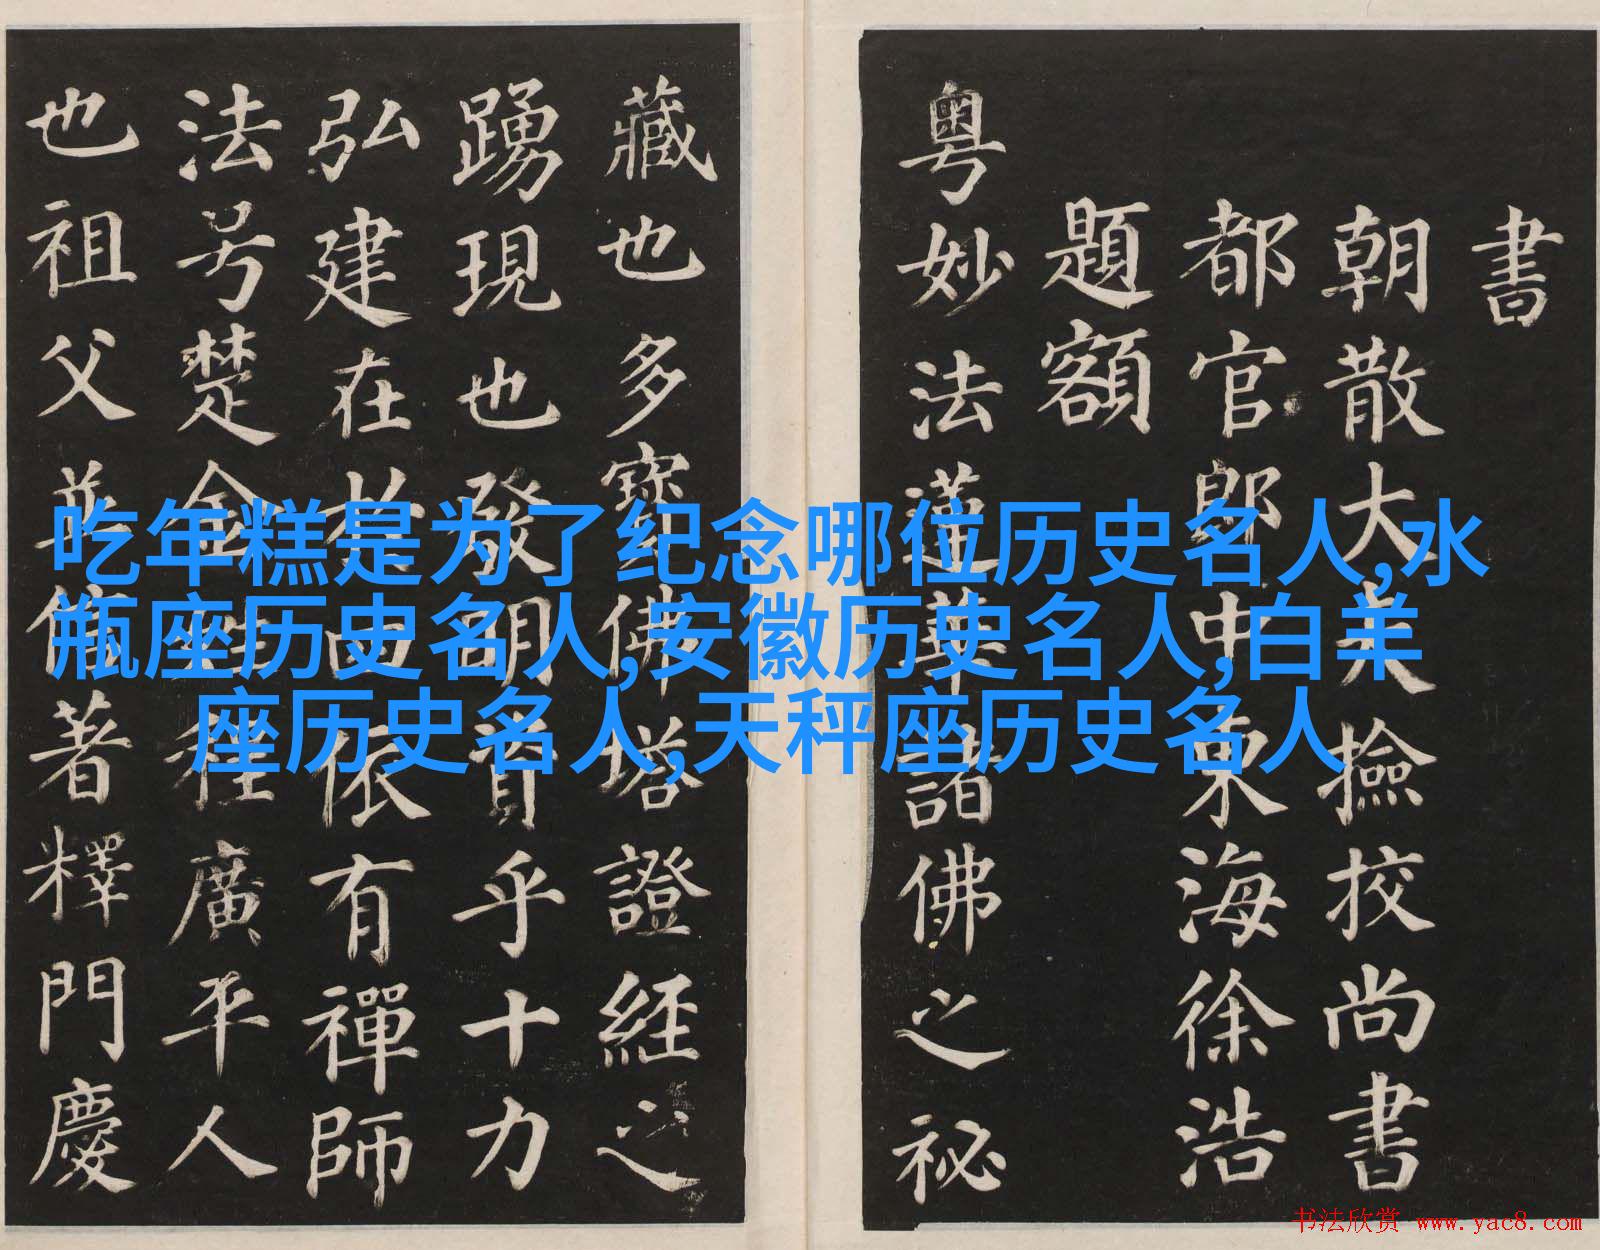 书
朝散大夫撿挍尚書
都官郎中東海徐浩
題額
粤妙法蓮華諸佛之祕
藏也多寶佛塔證経之
踴現也發明資乎十力
弘建在於四依有禪師
法号楚金姓程廣平人
也祖父並信著釋門慶
吃年糕是为了纪念哪位历史名人,水
瓶座历史名人,安徽历史名人,白羊
座历史名人,天秤座历史名人
书法欣赏 www.yac8.com